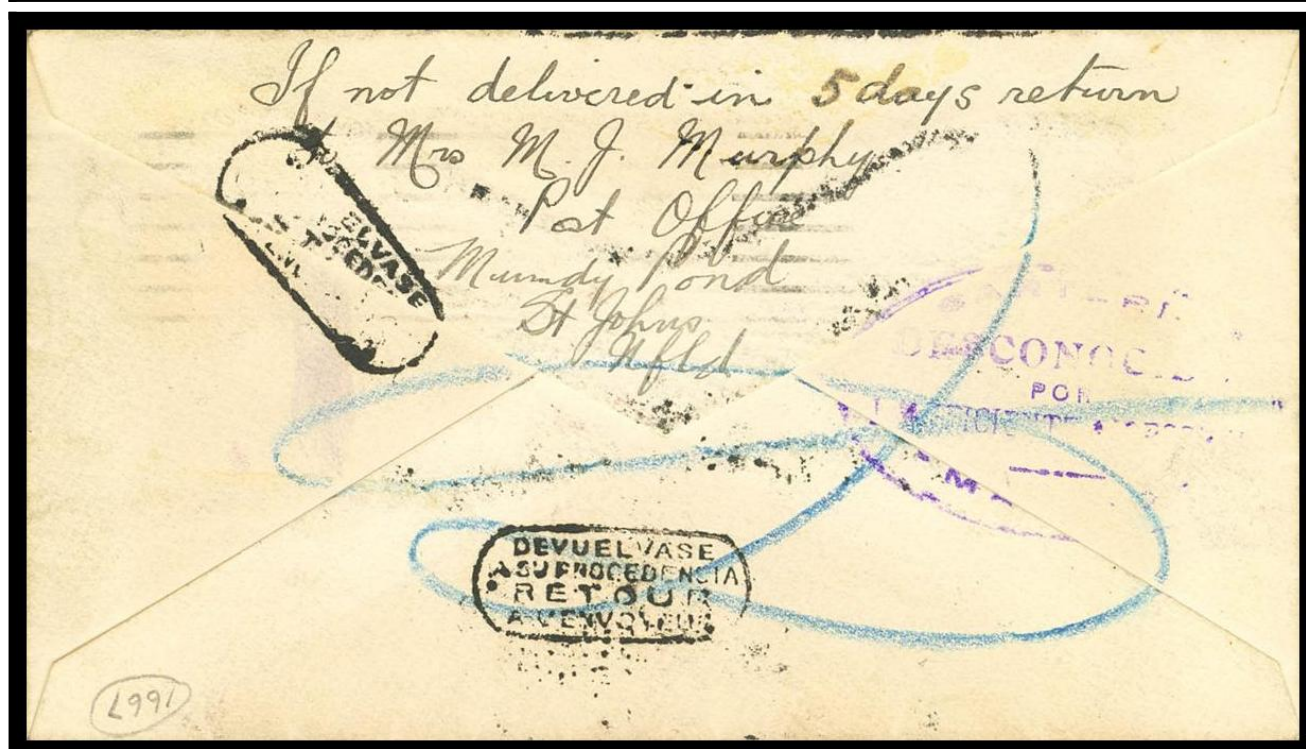 If not delivered in 5 days return
to Mrs M. J. Murphy
Post Office
Mundy Pond
St Johns
Nfld
ELVASE
DESCONOC
POR
DEVUELVASE
A SU PROCEDENCIA
RETOUR
A L'ENVOYEUR
1667